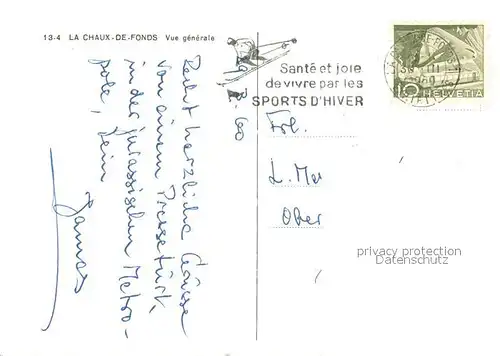 13-4 LA CHAUX-DE-FONDS Vue générale
Santé et joie
de vivre par les
SPORTS D'HIVER
15 HELVETIA
60
Recht herzliche Grüsse
von einem
in der jurassischen Metro-
pole, Dein
Frl.
L. Me
Ober
privacy protection
Datenschutz